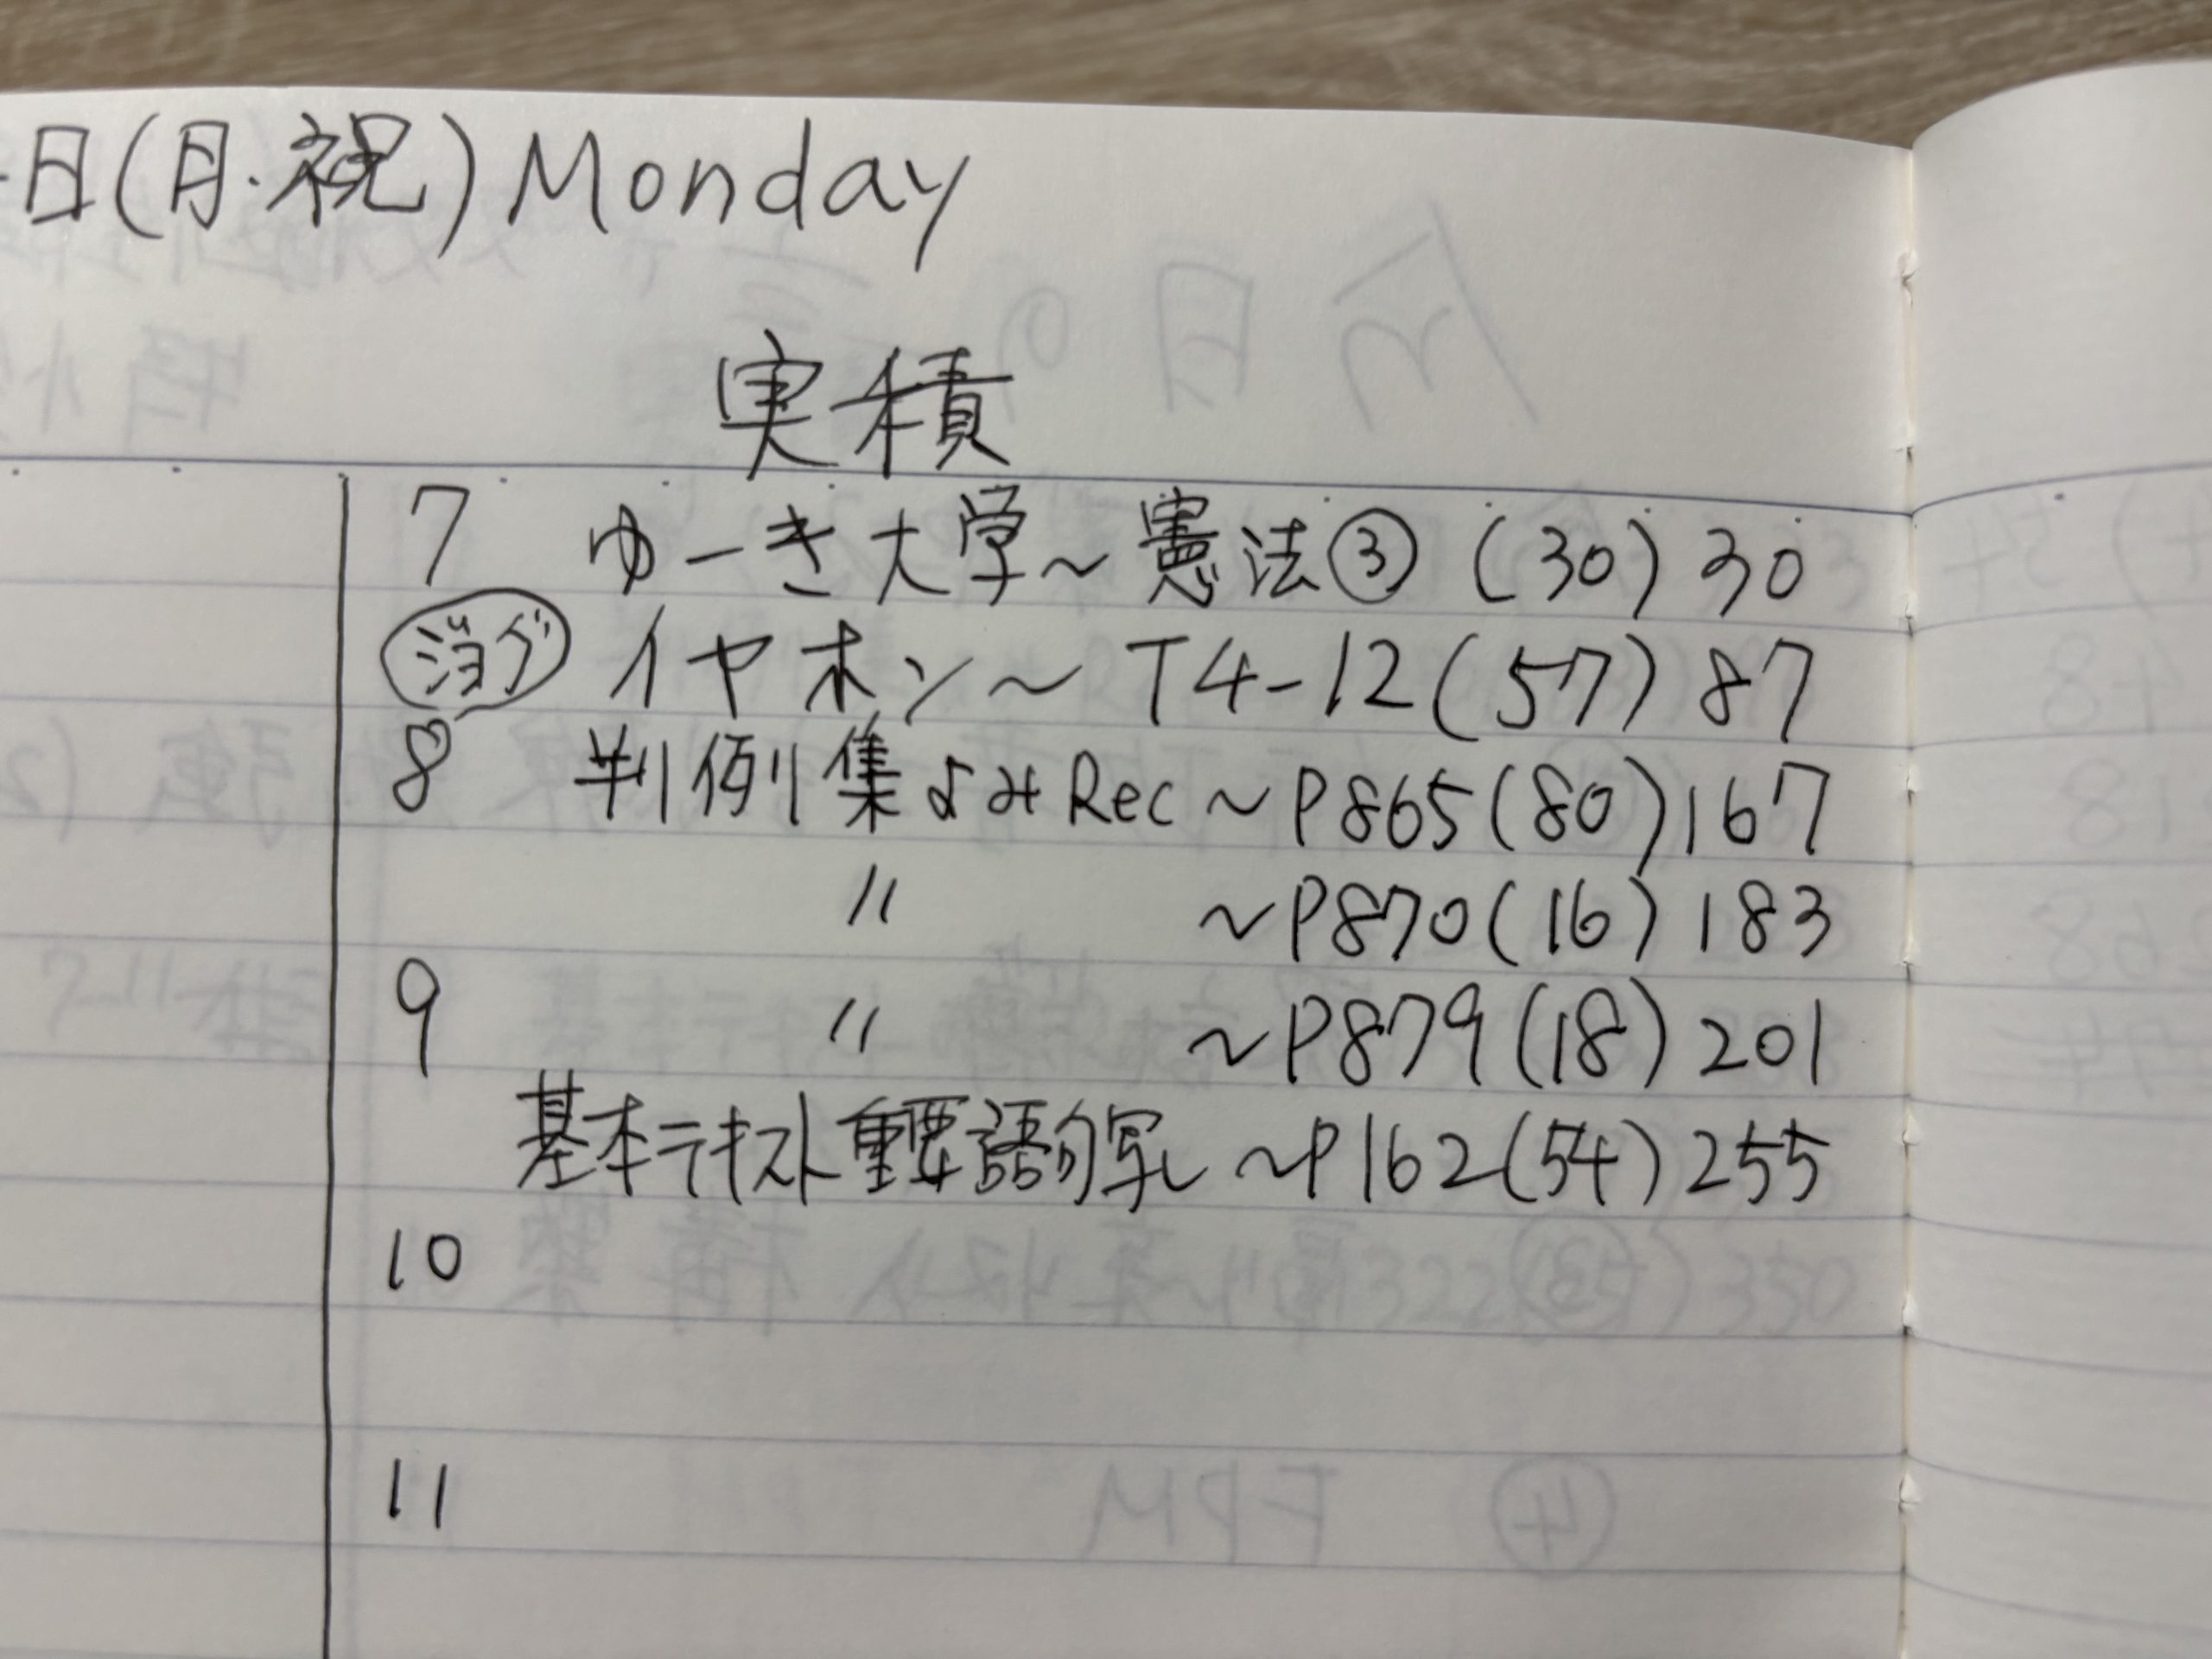 日(月・祝) Monday
実積
7 ゆーき大学～憲法③ (30) 30
ジョグ イヤホン～T4-12(57) 87
8 判例集よみRec～P865(80)167
〃 ～P870(16) 183
9 〃 ～P879(18) 201
基本テキスト重要語句写し～P162(54)255
10
11